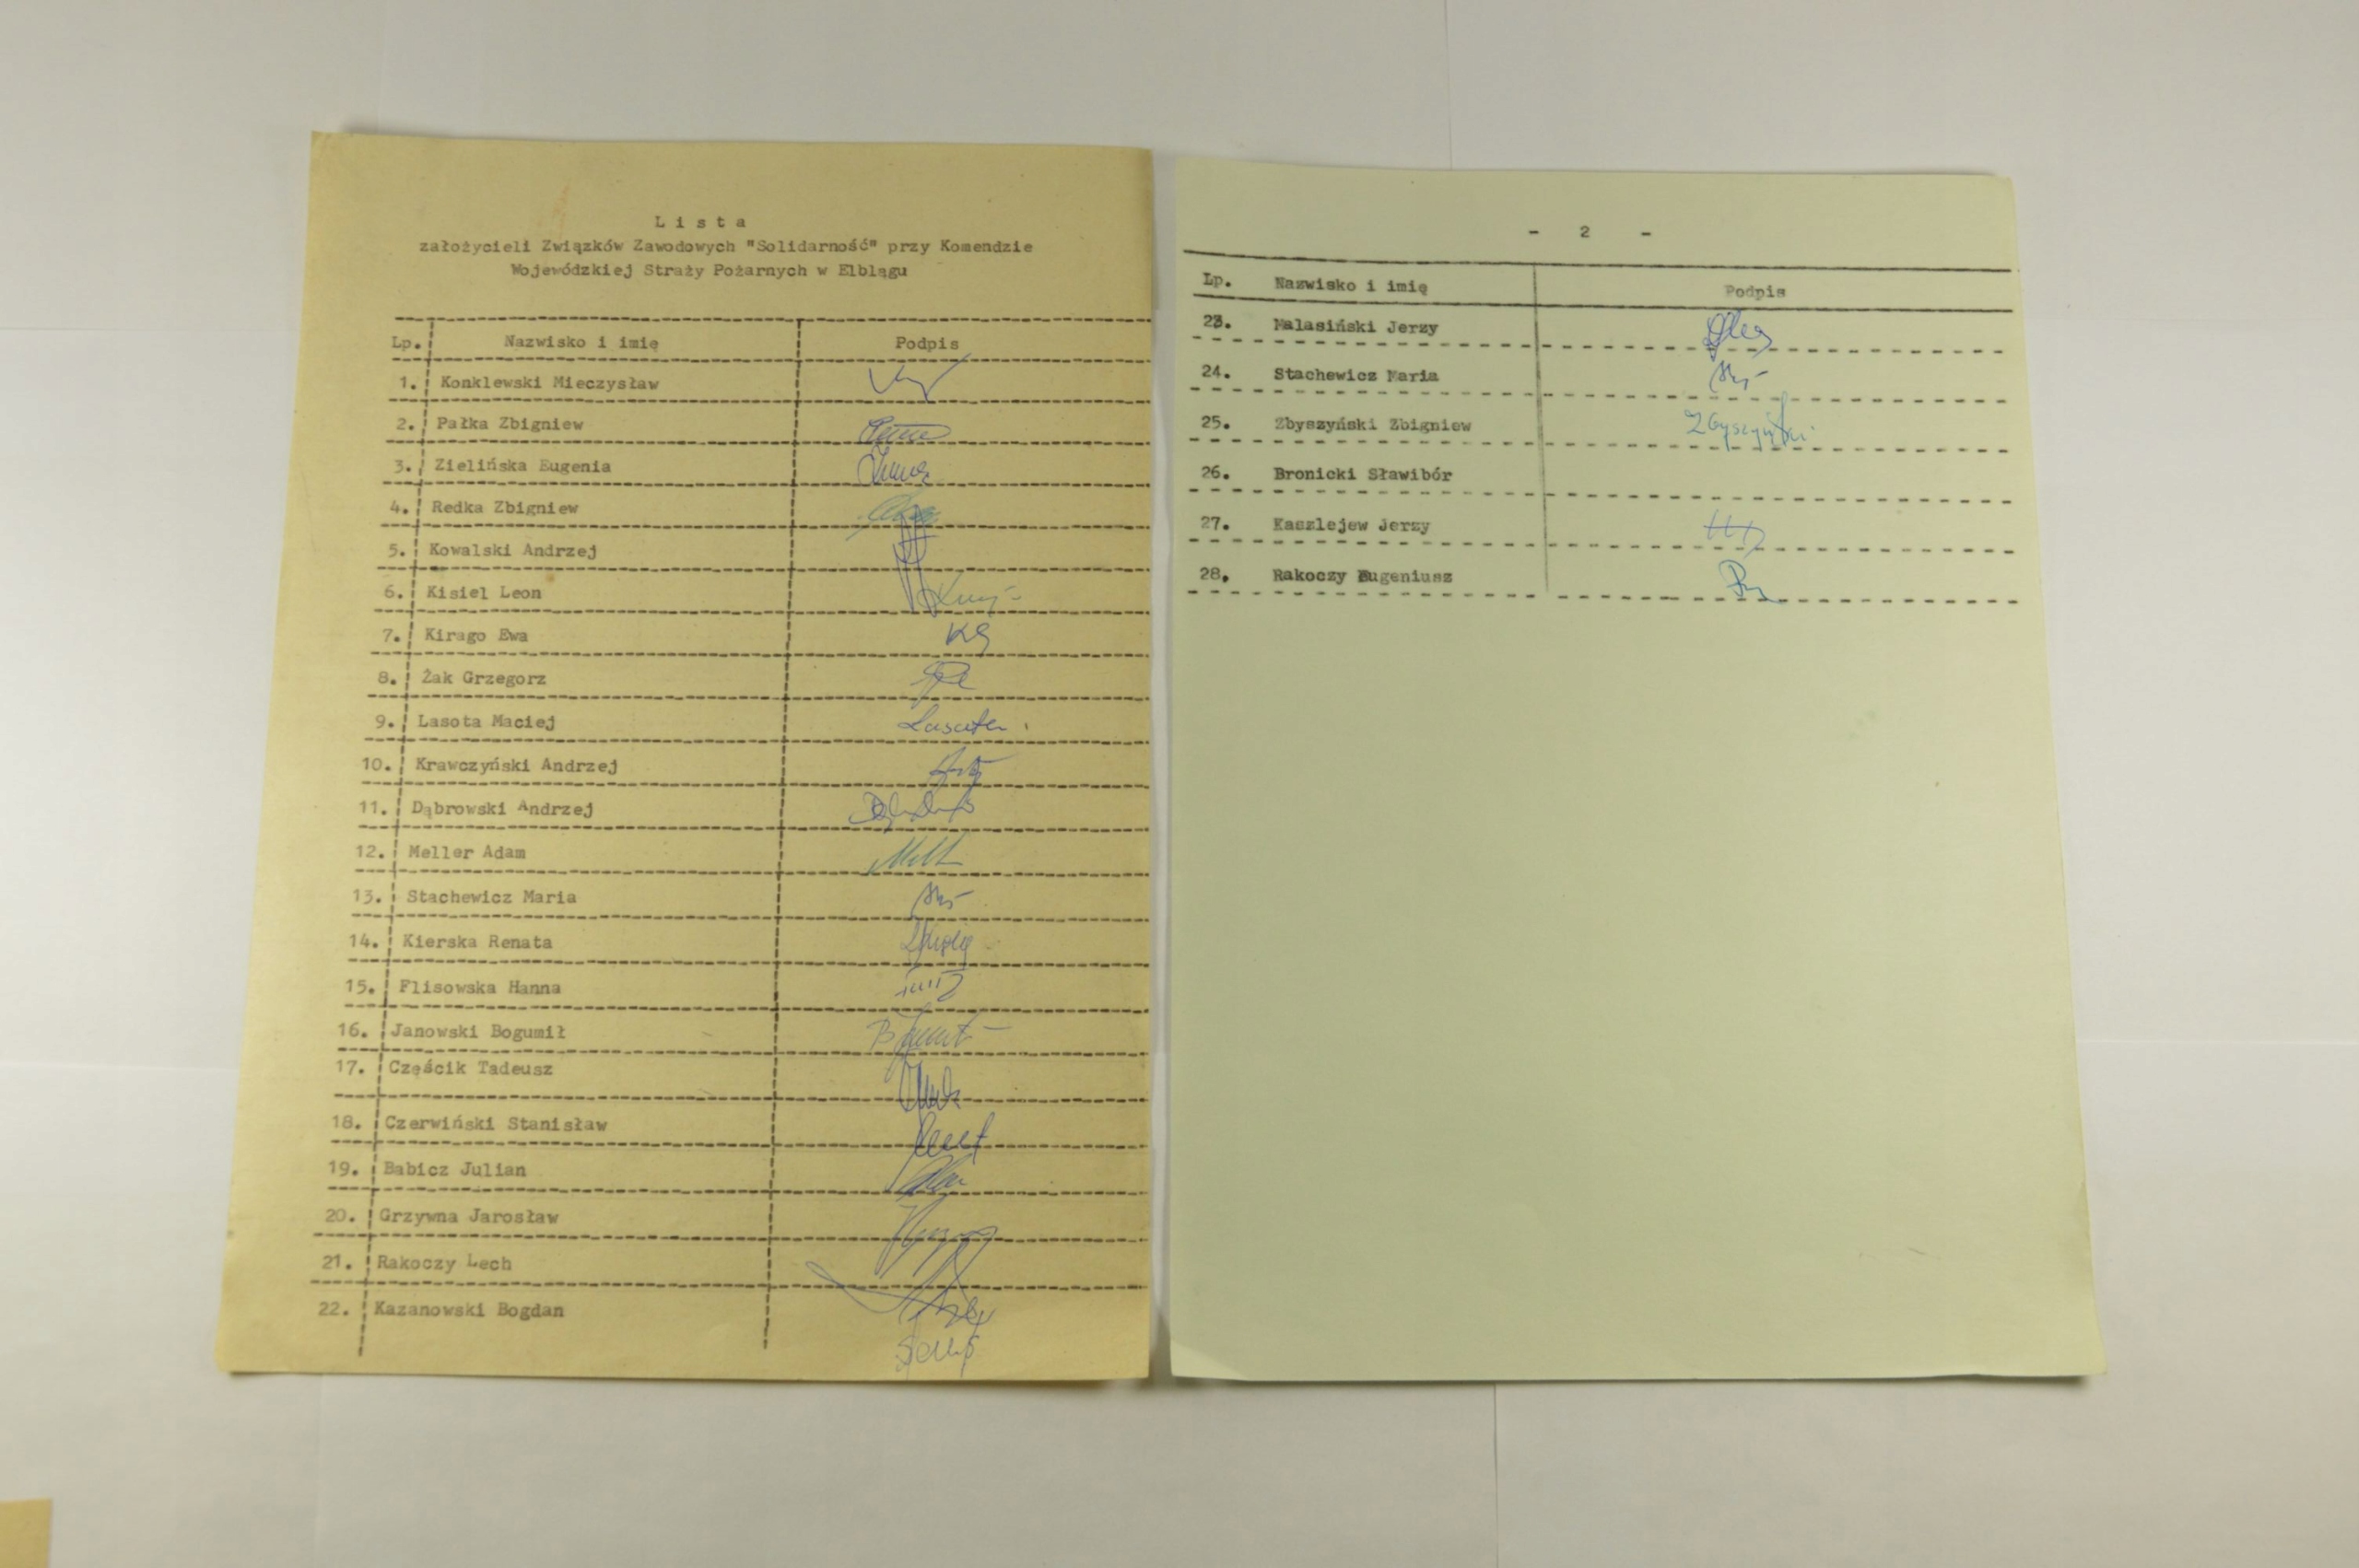 Lista
założycieli Związków Zawodowych "Solidarność" przy Komendzie
Wojewódzkiej Straży Pożarnych w Elblągu
Lp. Nazwisko i imię Podpis
1. Konklewski Mieczysław
2. Pałka Zbigniew
3. Zielińska Eugenia
4. Redka Zbigniew
5. Kowalski Andrzej
6. Kisiel Leon
7. Kirago Ewa
8. Żak Grzegorz
9. Lasota Maciej Lasota
10. Krawczyński Andrzej
11. Dąbrowski Andrzej
12. Meller Adam
13. Stachewicz Maria
14. Kierska Renata
15. Flisowska Hanna
16. Janowski Bogumił
17. Częścik Tadeusz
18. Czerwiński Stanisław
19. Babicz Julian
20. Grzywna Jarosław
21. Rakoczy Lech
22. Kazanowski Bogdan
- 2 -
Lp. Nazwisko i imię Podpis
23. Malasiński Jerzy
24. Stachewicz Maria
25. Zbyszyński Zbigniew Zbyszyński
26. Bronicki Sławibór
27. Kaszlejew Jerzy
28. Rakoczy Eugeniusz